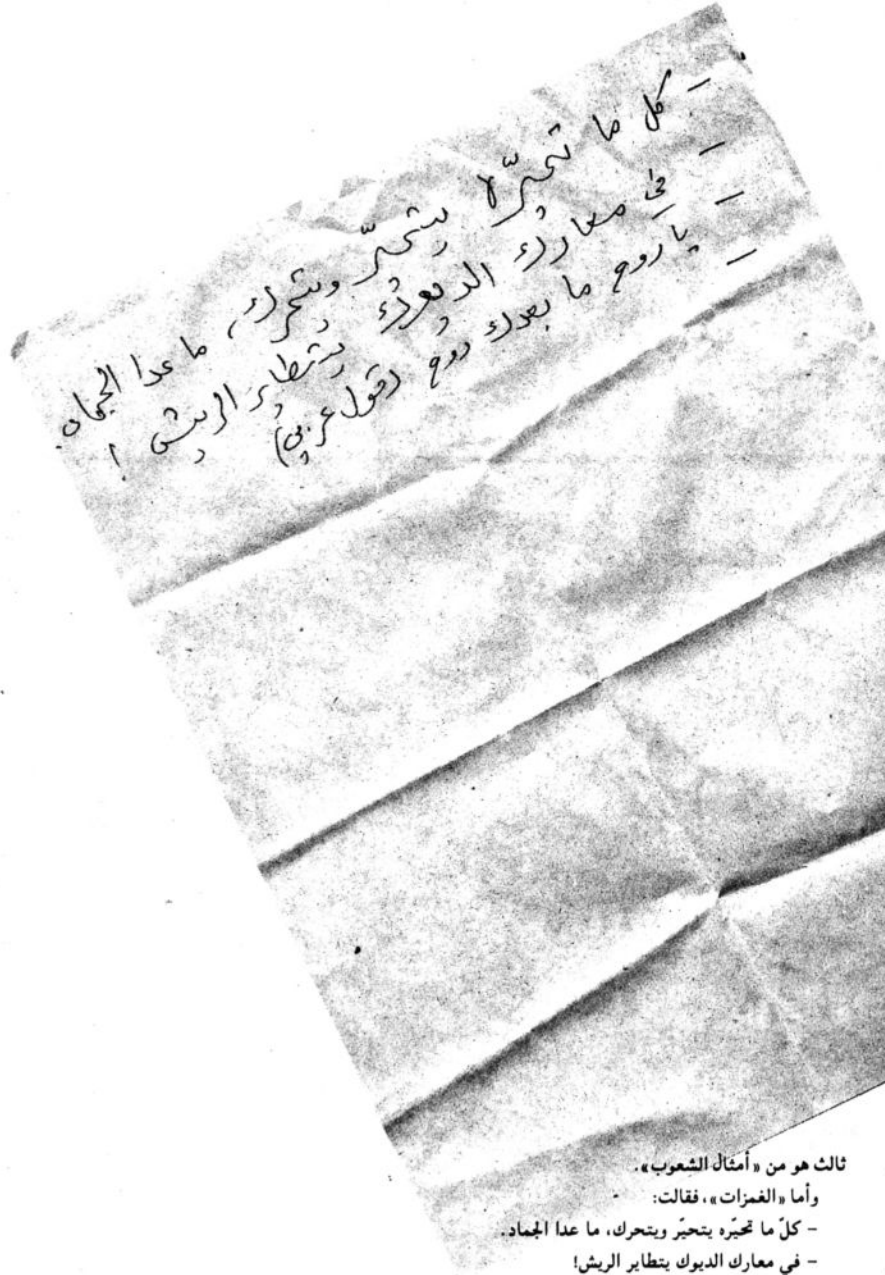 - كل ما تحيّره يتحيّر ويتحرك، ما عدا الجماد.
- في معارك الديوك يتطاير الريش!
- يا روح ما بعدك روح (قول عربي)
-
ثالث هو من «أمثال الشعوب».
وأما «الغمزات»، فقالت:
- كلّ ما تحيّره يتحيّر ويتحرك، ما عدا الجماد.
- في معارك الديوك يتطاير الريش!